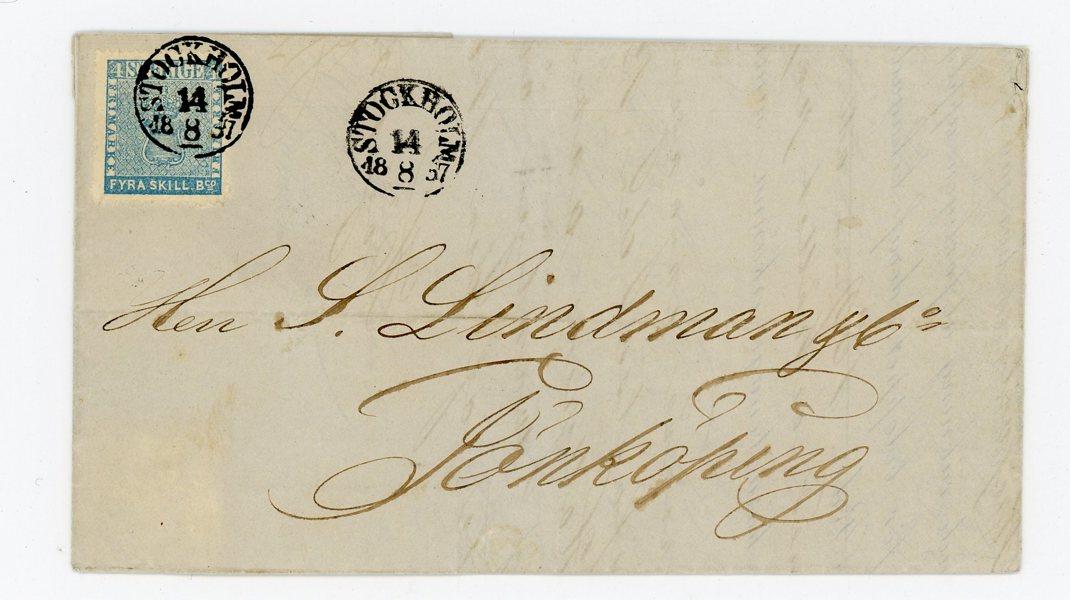 4 SVERIGE 4
FRIMÄRKE
FYRA SKILL. Bco
STOCKHOLM
14
18 8 57
STOCKHOLM
14
18 8 57
Herr S. Lindman & Co
Jönköping